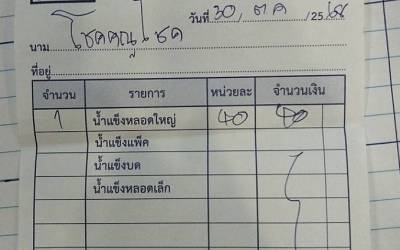 วันที่ 30, ตค /25
นาม โชคคูณโชค
ที่อยู่
จำนวน รายการ หน่วยละ จำนวนเงิน
1 น้ำแข็งหลอดใหญ่ 40 40
น้ำแข็งแพ็ค
น้ำแข็งบด
น้ำแข็งหลอดเล็ก